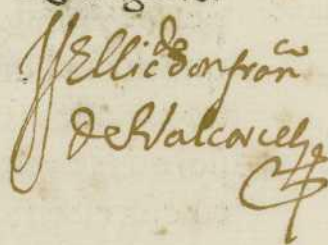 El licdo don franco
de Valcarcel